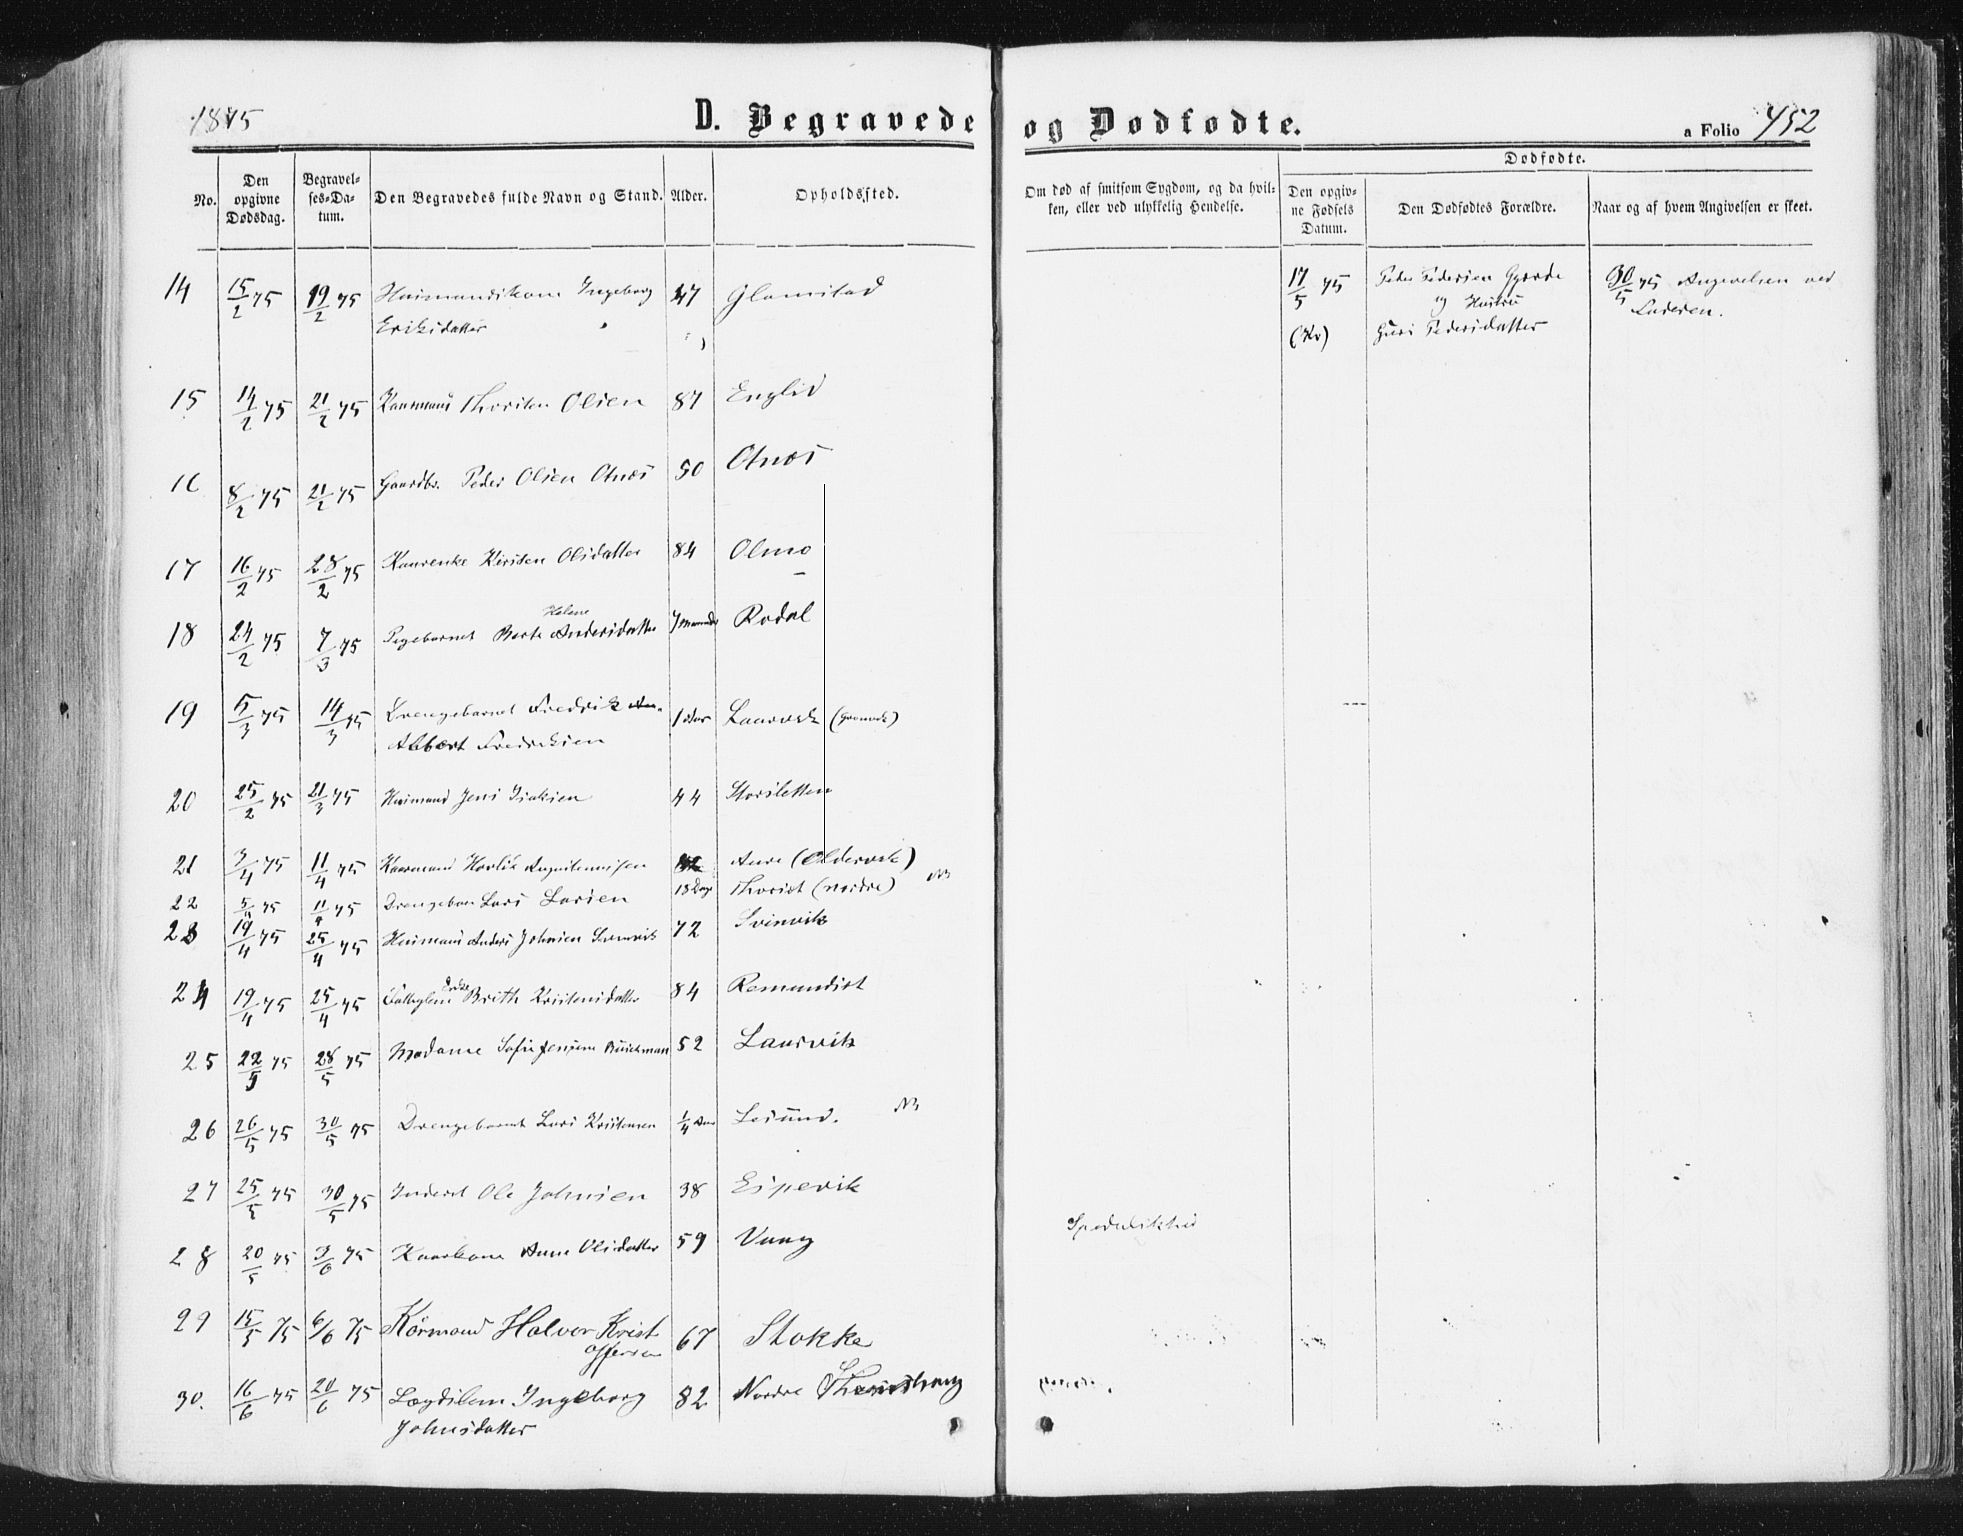 1875
D. Begravede og Dødfødte.
a Folio 452
Dødfødte.
No. Den opgivne Dødsdag. Begravelses-Datum. Den Begravedes fulde Navn og Stand. Alder. Opholdssted. Om død af smitsom Sygdom, og da hvilken, eller ved ulykkelig Hendelse. Den opgivne Fødsels Datum. Den Dødfødtes Forældre. Naar og af hvem Angivelsen er skeet.
14 15/2 75 19/2 75 Huusmandskone Ingeborg 47 Glamstad 17/5 75 Peder Pedersen Gjerde 30/5 75 Angivelsen ved
og Hustru Faderen.
Eriksdatter (Kv) Guri Pedersdatter
15 14/2 75 21/2 75 Kaarmand Thorsten Olsen 87 Englid
16 8/2 75 21/2 75 Gaardbr. Peder Olsen Otnæs 50 Otnæs
17 16/2 75 28/2 75 Kaarenke Kirsten Olsdatter 84 Olmo
Helene
18 24/2 75 7/3 75 Pigebarnet Berte Andersdatter 7 Maaneder Rodal
19 5/3 75 14/3 75 Drengebarnet Fredrik 1 Aar Laurvik
Albert Fredriksen
20 25/2 75 21/3 75 Huusmand Jens Isaksen 44 Storsletten
21 3/4 75 11/4 75 Kaarmand Aure (Oldervik)
22 5/4 75 11/4 75 Drengebarn Lars Larsen 18 Dage Thorset (nordre) NB
23 19/4 75 25/4 75 Huusmand Anders Johnsen Svinvik 72 Svinvik
24 19/4 75 25/4 75 Fattiglem Enke Brith Kristensdatter 84 Romundset
25 22/5 75 28/5 75 Madame Sofie Jensine 52 Laurvik
26 26/5 75 30/5 75 Drengebarnet Lars Kristensen 1/4 Aar Lesund. NB
27 25/5 75 30/5 75 Inderst Ole Johnsen 38 Espevik
28 20/5 75 3/6 75 Kaarkone Anne Olsdatter 59 Vaag Spedalskhed
29 15/5 75 6/6 75 Kårmand Halvor Krist 67 Stokke
offersen
30. 16/6 75 20/6 75 Lægdslem Ingeborg 82 Nordre
Johnsdatter